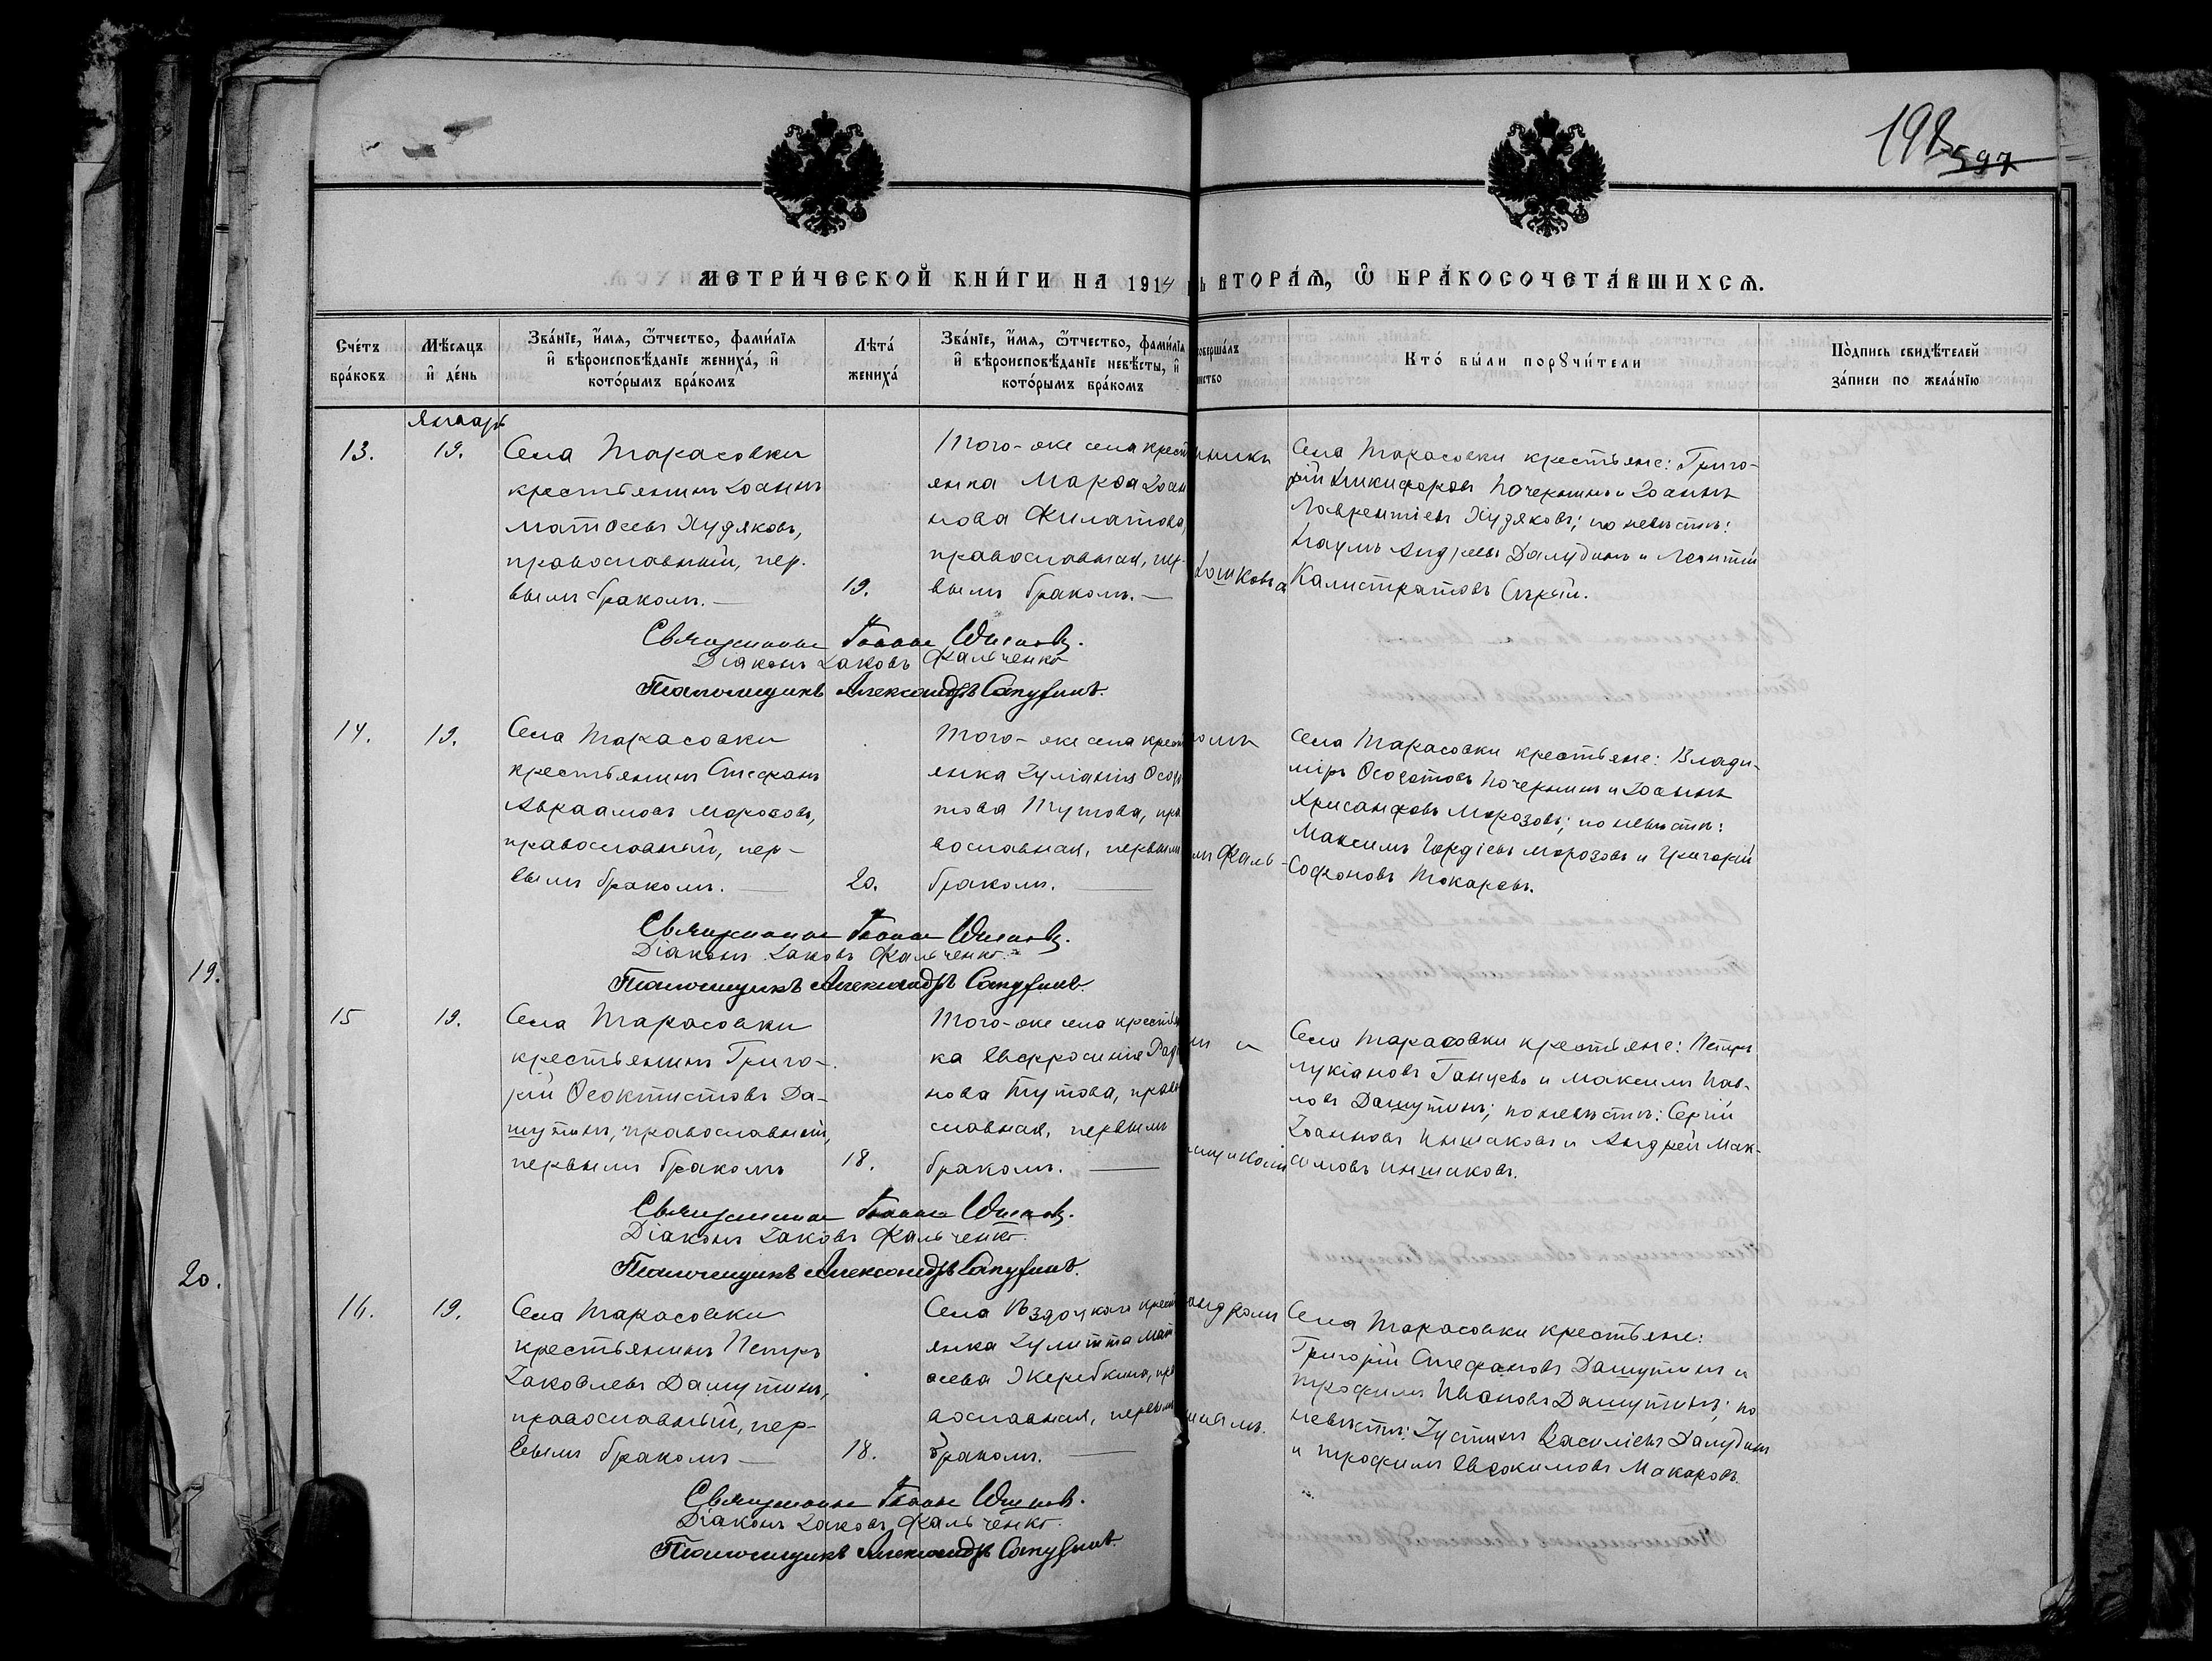 198
597
МЕТРИ́ЧЕСКОЙ КНИ́ГИ НА 1914
ВТОРА́Ѧ, Ѡ҆ БРА́КОСОЧЕТА́ВШИХСѦ.
Сче́тъ бра́ковъ
Мѣ́сяцъ и҆ де́нь
Зва́нїе, и҆́мя, ѻ҆́тчество, фами́лїя и҆ вѣроисповѣ́данїе жениха́, и҆ кото́рымъ бра́комъ
Лѣта́ жениха́
Зва́нїе, и҆́мя, ѻ҆́тчество, фами́лїя и҆ вѣроисповѣ́данїе невѣ́сты, и҆ кото́рымъ бра́комъ
соверша́лъ
Кто́ бы́ли порꙋчи́тели
По́дпись свидѣ́телей за́писи по жела́нїю
Январь
13.
19.
Села Тарасовки
крестьянинъ Іоаннъ
Матѳеевъ Худяковъ,
православный, пер-
вымъ бракомъ. —
19.
Того-же села крест
янка Марѳа Іоан
нова Филатова,
православная, пер-
вымъ бракомъ. —
Села Тарасовки крестьяне: Григо-
рій Никифоровъ Почернинъ и Іоаннъ
Лаврентіевъ Худяковъ; по невѣстѣ:
Наумъ Андреевъ Далудинъ и Леонтій
Калистратовъ Сѣрый.
Священникъ Іоаннъ
Діаконъ Іаковъ Фальченко
Псаломщикъ Александръ
14.
19.
Села Тарасовки
крестьянинъ Стефанъ
Авраамовъ Морозовъ,
православный, пер-
вымъ бракомъ. —
20.
Того-же села крест
янка Іуліанія Ѳеодо
това Тутова, пра
вославная, первымъ
бракомъ. —
Села Тарасовки крестьяне: Влади-
міръ Ѳеодотовъ Почернинъ и Іоаннъ
Хрисанфовъ Морозовъ; по невѣстѣ:
Максимъ Гордіевъ Морозовъ и Григорій
Софроновъ Токаревъ.
Священникъ Іоаннъ
Діаконъ Іаковъ Фальченко.
Псаломщикъ Александръ
15
19.
Села Тарасовки
крестьянинъ Григо-
рій Ѳеоктистовъ Да-
шутинъ, православный,
первымъ бракомъ
18.
Того-же села крестьян
ка Евфросинія
нова Тутова, право
славная, первымъ
бракомъ. —
и
Села Тарасовки крестьяне: Петръ
Лукіановъ Ганцевъ и Максимъ Пав-
ловъ Дашутинъ; по невѣстѣ: Сергій
Іоанновъ Иншаковъ и Андрей Мак-
симовъ Иншаковъ.
Священникъ Іоаннъ
Діаконъ Іаковъ Фальченко.
Псаломщикъ Александръ
16.
19.
Села Тарасовки
крестьянинъ Петръ
Іаковлевъ Дашутинъ,
православный, пер-
вымъ бракомъ —
18.
Села крест
янка Іулитта Мат
ѳеева Жеребкина, пра
вославная, первымъ
бракомъ. —
Села Тарасовки крестьяне:
Григорій Стефановъ Дашутинъ и
Трофимъ Ивановъ Дашутинъ; по
невѣстѣ: Іустинъ Василіевъ Далудинъ
и Трофимъ Евдокимовъ Макаровъ.
Священникъ Іоаннъ
Діаконъ Іаковъ Фальченко.
Псаломщикъ Александръ
19.
20.